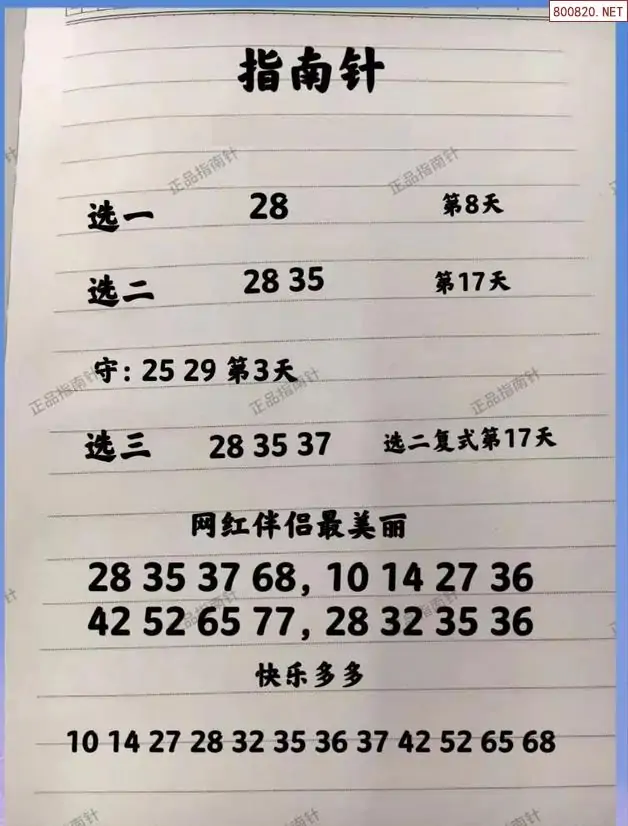 800820.NET
指南针
正品指南针 正品指南针
选一 28 第8天
选二 28 35 第17天
守：25 29 第3天
正品指南针 正品指南针 正品指南针
选三 28 35 37 选二复式第17天
网红伴侣最美丽
28 35 37 68, 10 14 27 36
42 52 65 77, 28 32 35 36
快乐多多
10 14 27 28 32 35 36 37 42 52 65 68